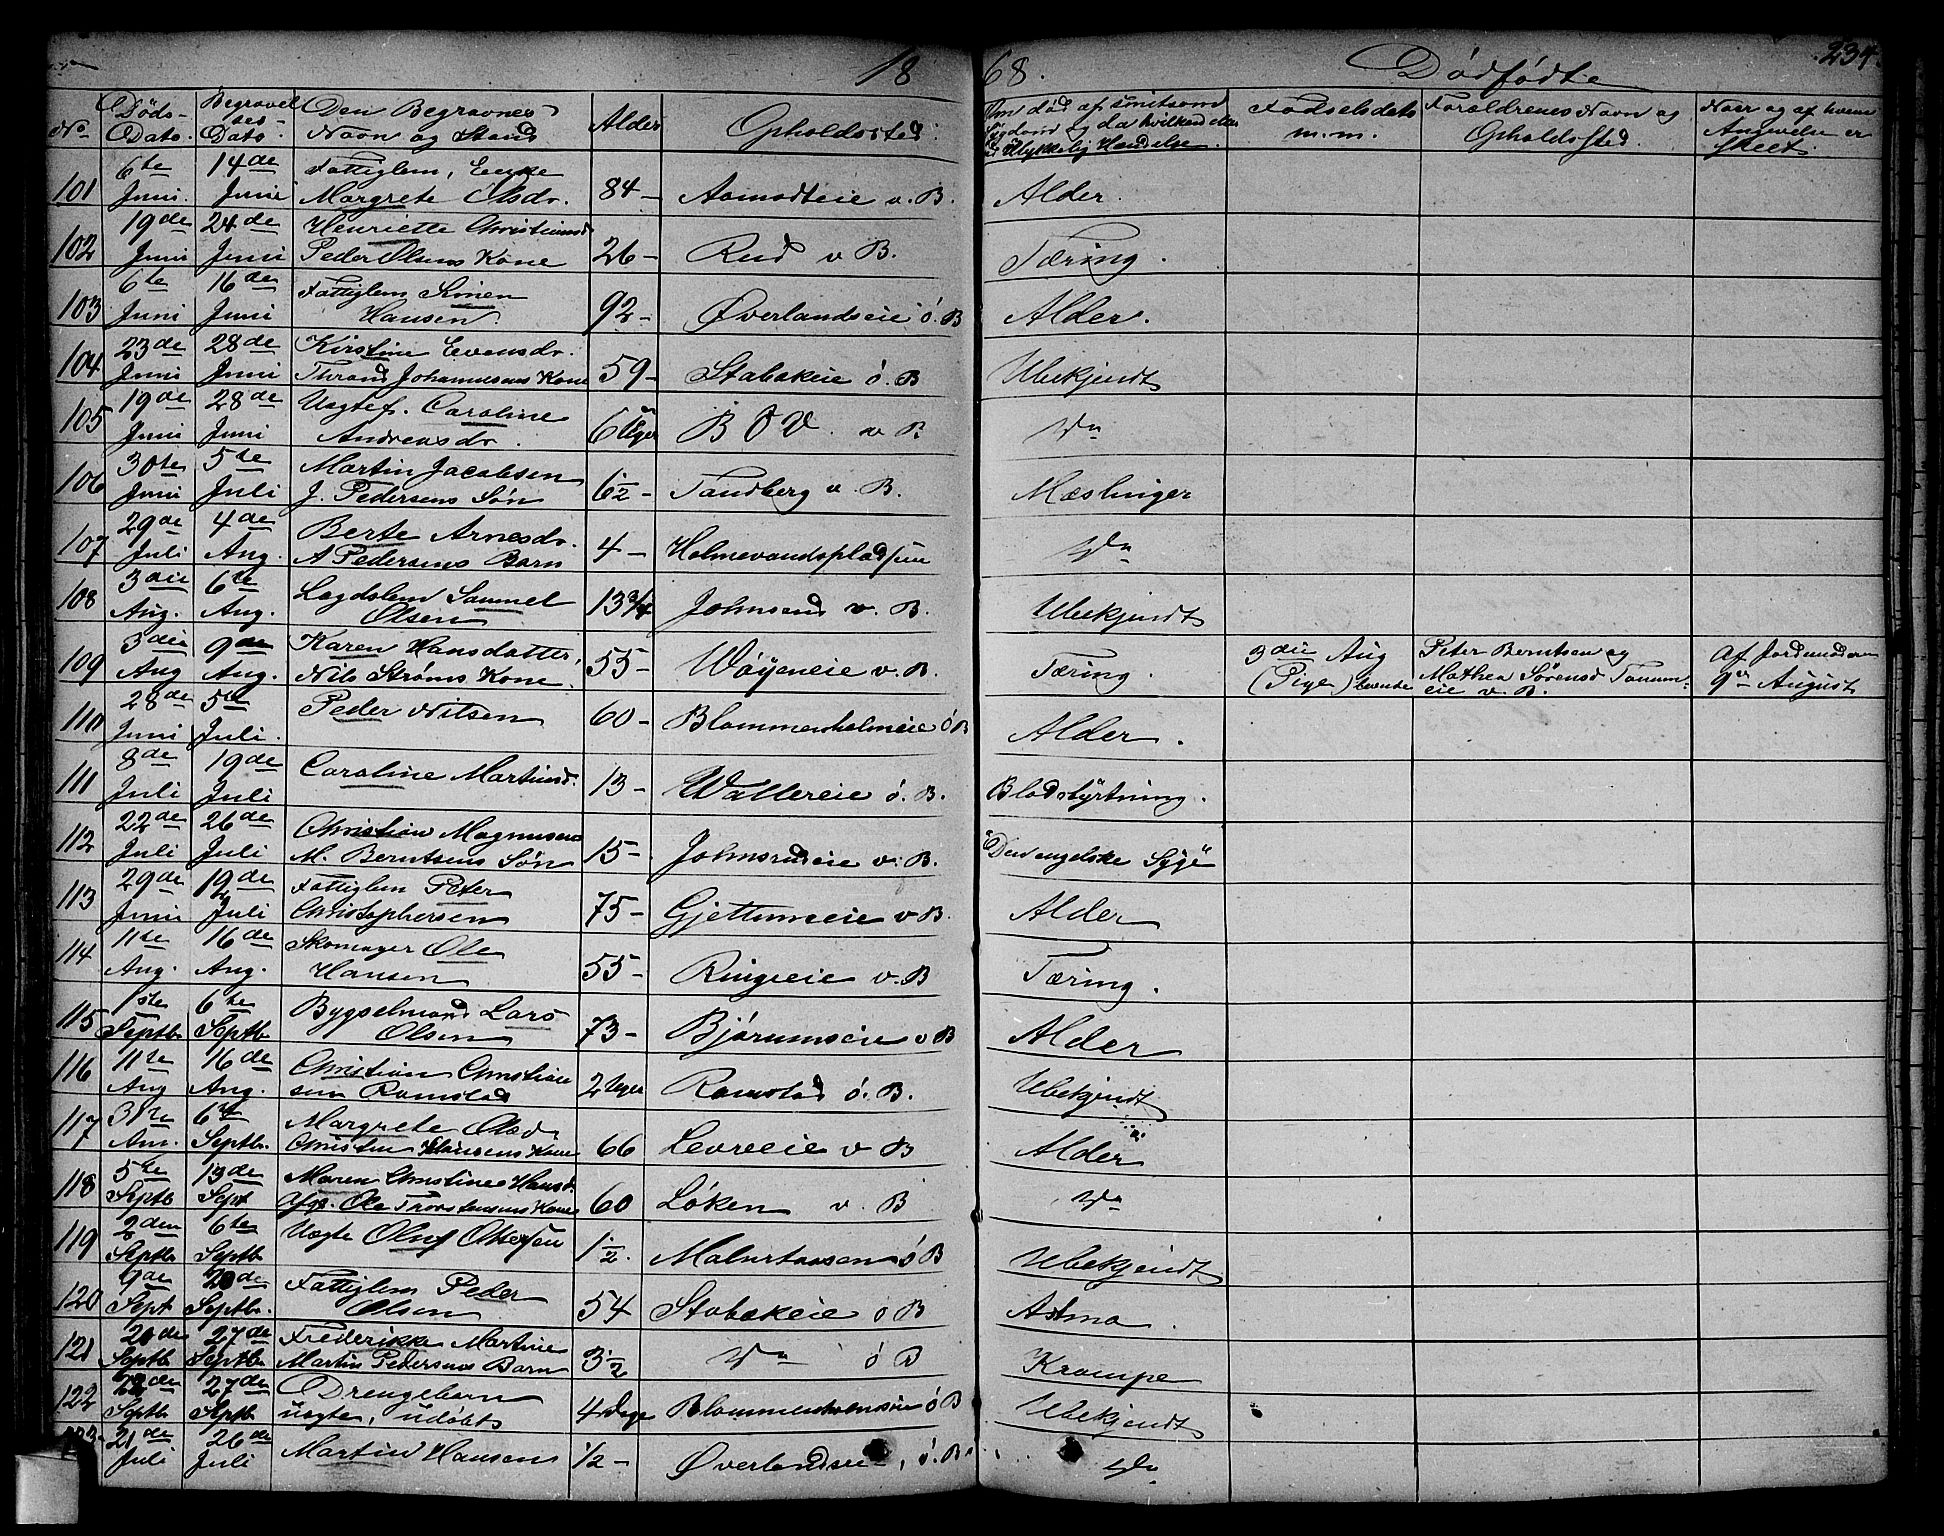 1868. Dødfødte 234
No Døds- Dato. Begravel ses- Dato Den Begravnes Navn og Stand Alder Opholdssted. Om død af smitsom Sygdom og da hvilken eller ved Ulykkelig Hændelse. Fødselsdato m.m. Forældrenes Navn og Opholdssted. Naar og af hvem Angivelse er skeet.
101 6te Juni. 14de Juni Fattiglem, Enke Margrete Olsdr. 84- Aamodteie v. B. Alder.
102 19de Juni 24de Juni Henriette Christiansd Peder Olsens Kone 26- Rud v B. Tæring.
103 6te Juni 16de Juni Fattiglem Simen Hansen. 92- Øverlandseie ö. B Alder.
104 23de Juni 28de Juni Kirstine Evensdr. Thrond Johannesens Kone 59- Stabækeie ö. B Ubekjendt
105 19de Juni 28de Juni Uægtef. Caroline Andreasdr. 6 Uger B v B Do
106 30te Juni 5te Juli Martin Jacobsen J. Pedersens Søn 6½- Tandberg v. B. Mæslinger
107 29de Juli 4de Aug. Berte Arnesdr. A Pedersens Barn 4- Holmevandspladsen Do
108 3die Aug. 6te Aug. Lægdslem Samuel Olsen 13¾ Johnsrud v. B. Ubekjendt
109 3die Aug 9de Aug. Karen Hansdatter, Nils Strøms Kone. 55- Wøyeneie v. B. Tæring. 3die Aug (Pige) levende Peter Berntsen og Mathea Sørensd Tanum- eie v. B. Af Jordmoderen 9de August
110 28de Juni 5te Juli. Peder Nilsen 60- Blommenholmeie ö B Alder.
111 8de Juli 19de Juli Caroline Martinsd. 13- Wallereie ö. B. Blodstyrtning.
112 22de Juli 26de Juli Christian Magnusen M. Berntsens Søn 15- Johnsrudeie v. B. "Den engelske Syge"
113 29de Juni 19de Juli Fattiglem Peter Christophersen 75- Gjettumeie v B. Alder
114 11te Aug. 16de Aug. Skomager Ole Hansen 55- Ringieie v. B Tæring.
115 1ste Septb. 6te Septb Bygselmand Lars Olsen 73- Bjørumseie v B Alder
116 11te Aug 16de Aug. Christian Christian sen Ramstad 2 Uger Ramstad ö. B. Ubekjendt
117 31te 6te Septb. Margrete Olsd. Christen Hansens Kone 66 Levreeie v B Alder
118 5te Septb 13de Sept Maren Christine Hansd. Ole Thorstensens Kone 60 Løken v. B Do
119 2den Septb 6te Septb Uægte Oluf Ottersen 1½. ö B Ubekjendt
120 9de Sept 20de Septb. Fattiglem Peder Olsen 54 Stabækeie ö B Astma.
121 20de Septb 27de Septb. Frederikke Martine Martin Pedersens Barn 3½ Do ö B Krampe
122 Septb 27de Septb Drengebarn uægte, udøbt 4 Dage Blommenholmseie ö B Ubekjendt
123 21de Juli 26de Juli Martin Hansen ½- Øverlandseie, ö. B. Do